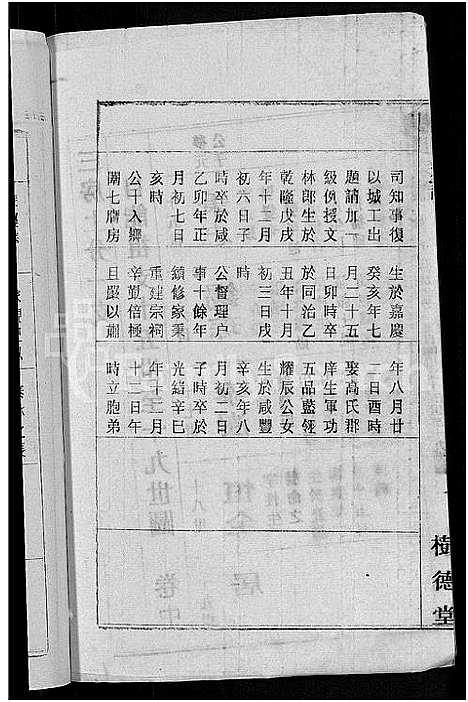 司知事復
以城工出
題請加一
級例授文
林郎生於
乾隆戊戌
年十二月
初六日子
時卒於咸
乙卯年正
月初七日
亥時
公十入鄉
闈七膺房
生於嘉慶
癸亥年七
月二十五
日卯時卒
於同治乙
丑年十月
初三日戌
時
公督理户
事十餘年
續修家乘
重建宗祠
辛勤倍極
且嚴以肅
年八月廿
二日酉時
娶高氏郡
庠生軍功
五品藍翎
耀辰公女
生於咸豐
辛亥年八
月初二日
子時卒於
光緒辛巳
年十二月
十三日午
時立胞弟
樹德堂